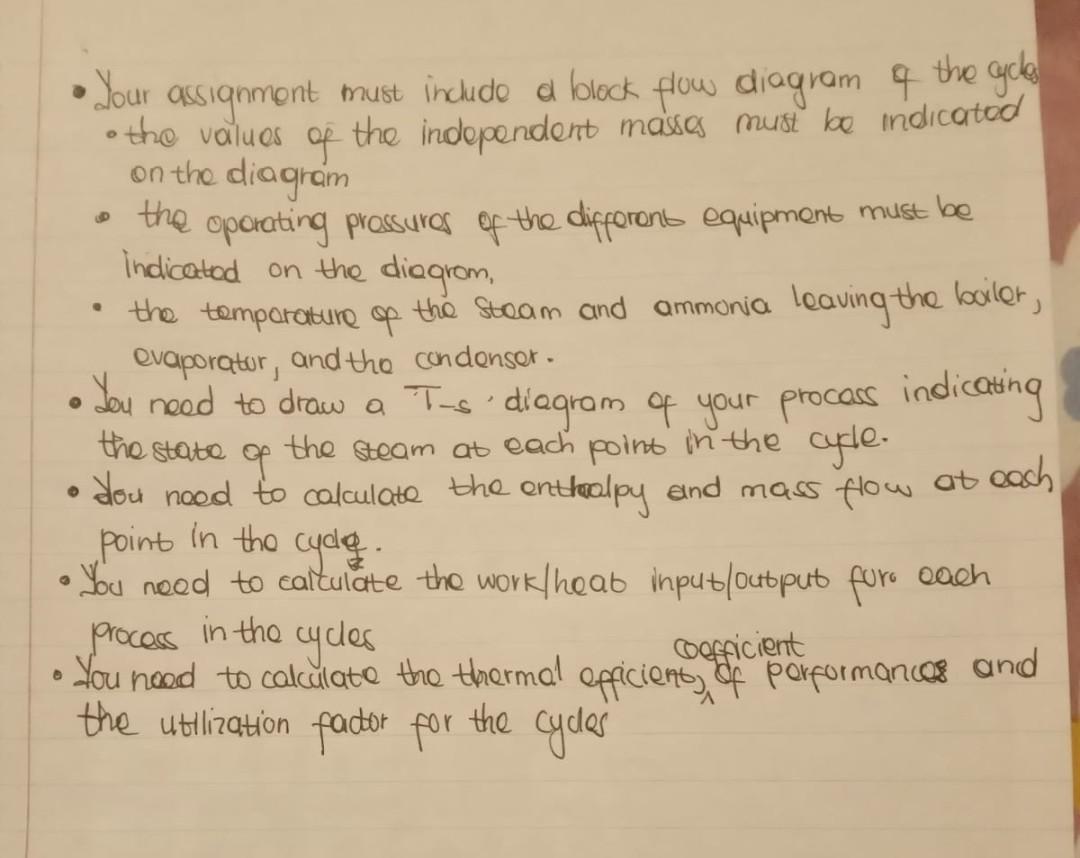 • Your assignment must include a block flow diagram of the cycle
• the values of the independent masses must be indicated
on the diagram
• the operating pressures of the different equipment must be
indicated on the diagram,
• the temperature of the steam and ammonia leaving the boiler,
evaporator, and the condenser.
• You need to draw a T-s diagram of your process indicating
the state of the steam at each point in the cycle.
• You need to calculate the enthalpy and mass flow at each
point in the cycle.
• You need to calculate the work/heat input/output for each
process in the cycles
coefficient
• You need to calculate the thermal efficient, of performances and
the utilization factor for the cycles